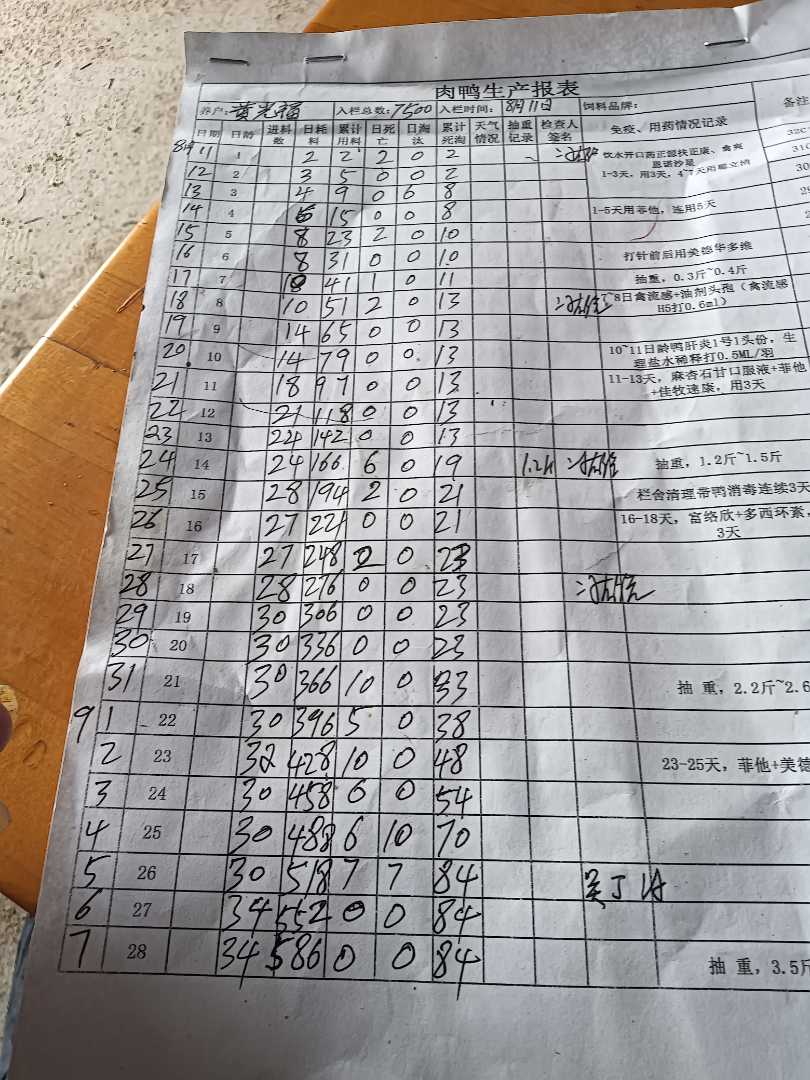 肉鸭生产报表
养户: 黄光福 入栏总数: 7500 入栏时间: 8月11日 饲料品牌: 备注
日期 日龄 进料数 日耗料 累计用料 日死亡 日淘汰 累计死淘 天气情况 抽重记录 检查人签名 免疫、用药情况记录
8月11 1 2 2 2 0 2 饮水开口药正源扶正康、禽爽 恩诺沙星 32C°
12 2 3 5 0 0 2 1-3天，用3天，4~7天用 31C
13 3 4 9 0 6 8 30
14 4 6 15 0 0 8 1-5天用菲他，连用5天 29
15 5 8 23 2 0 10
16 6 8 31 0 0 10 打针前后用美德华多维
17 7 10 41 1 0 11 抽重，0.3斤~0.4斤
18 8 10 51 2 0 13 7~8日禽流感+油剂头孢（禽流感H5打0.6ml）
19 9 14 65 0 0 13
20 10 14 79 0 0 13 10~11日龄鸭肝炎1号1头份，生理盐水稀释打0.5ML/羽
21 11 18 97 0 0 13 11-13天，麻杏石甘口服液+菲他+佳牧速康，用3天
22 12 21 118 0 0 13
23 13 24 142 0 0 13
24 14 24 166 6 0 19 抽重，1.2斤~1.5斤
25 15 28 194 2 0 21 栏舍清理带鸭消毒连续3天
26 16 27 221 0 0 21 16-18天，富络欣+多西环素，3天
27 17 27 248 2 0 23
28 18 28 276 0 0 23
29 19 30 306 0 0 23
30 20 30 336 0 0 23
31 21 30 366 10 0 33 抽 重，2.2斤~2.6
9 1 22 30 396 5 0 38
2 23 32 428 10 0 48 23-25天，菲他+美德
3 24 30 458 6 0 54
4 25 30 488 6 10 70
5 26 30 518 7 7 84
6 27 34 552 0 0 84
7 28 34 586 0 0 84 抽 重，3.5斤